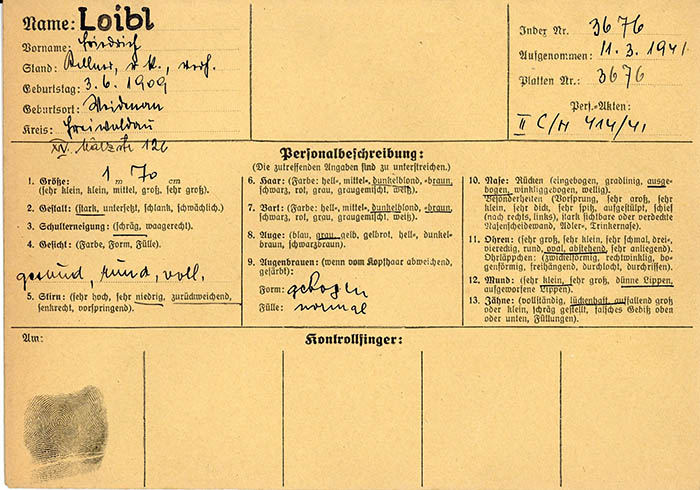 Name: Loibl
Vorname: Friedrich
Stand: Kellner, r. k., verh.
Geburtstag: 3. 6. 1909
Geburtsort: Weidenau
Kreis: Freiwaldau
126
Index Nr. 3676
Aufgenommen: 11. 3. 1941
Platten Nr.: 3676
Pers.-Akten:
II C/H 414/41
Personalbeschreibung:
(Die zutreffenden Angaben sind zu unterstreichen.)
1. Größe: 1 m 70 cm
(sehr klein, klein, mittel, groß, sehr groß).
2. Gestalt: (stark, untersetzt, schlank, schwächlich.)
3. Schulterneigung: (schräg, waagerecht.)
4. Gesicht: (Farbe, Form, Fülle).
gesund, rund, voll.
5. Stirn: (sehr hoch, sehr niedrig, zurückweichend,
senkrecht, vorspringend).
6. Haar: (Farbe: hell-, mittel-, dunkelblond, -braun,
schwarz, rot, grau, graugemischt, weiß).
7. Bart: (Farbe: hell-, mittel-, dunkelblond, -braun,
schwarz, rot, grau, graugemischt, weiß).
8. Auge: (blau, grau, gelb, gelbrot, hell-, dunkel-
braun, schwarzbraun).
9. Augenbrauen: (wenn vom Kopfhaar abweichend,
gefärbt):
Form: gebogen
Fülle: normal
10. Nase: Rücken (eingebogen, gradlinig, ausge-
bogen, winkliggebogen, wellig).
Besonderheiten (Vorsprung, sehr groß, sehr
klein, sehr dick, sehr spitz, aufgestülpt, schief
(nach rechts, links), stark sichtbare oder verdeckte
Nasenscheidewand, Adler-, Trinkernase).
11. Ohren: (sehr groß, sehr klein, sehr schmal, drei-,
viereckig, rund, oval, abstehend, sehr anliegend).
Ohrläppchen: (zwickelförmig, rechtwinklig, bo-
genförmig, freihängend, durchlocht, durchrissen).
12. Mund: (sehr klein, sehr groß, dünne Lippen,
aufgeworfene Lippen).
13. Zähne: (vollständig, lückenhaft, auffallend groß
oder klein, schräg gestellt, falsches Gebiß oben
oder unten, Füllungen).
Am:
Kontrollfinger: